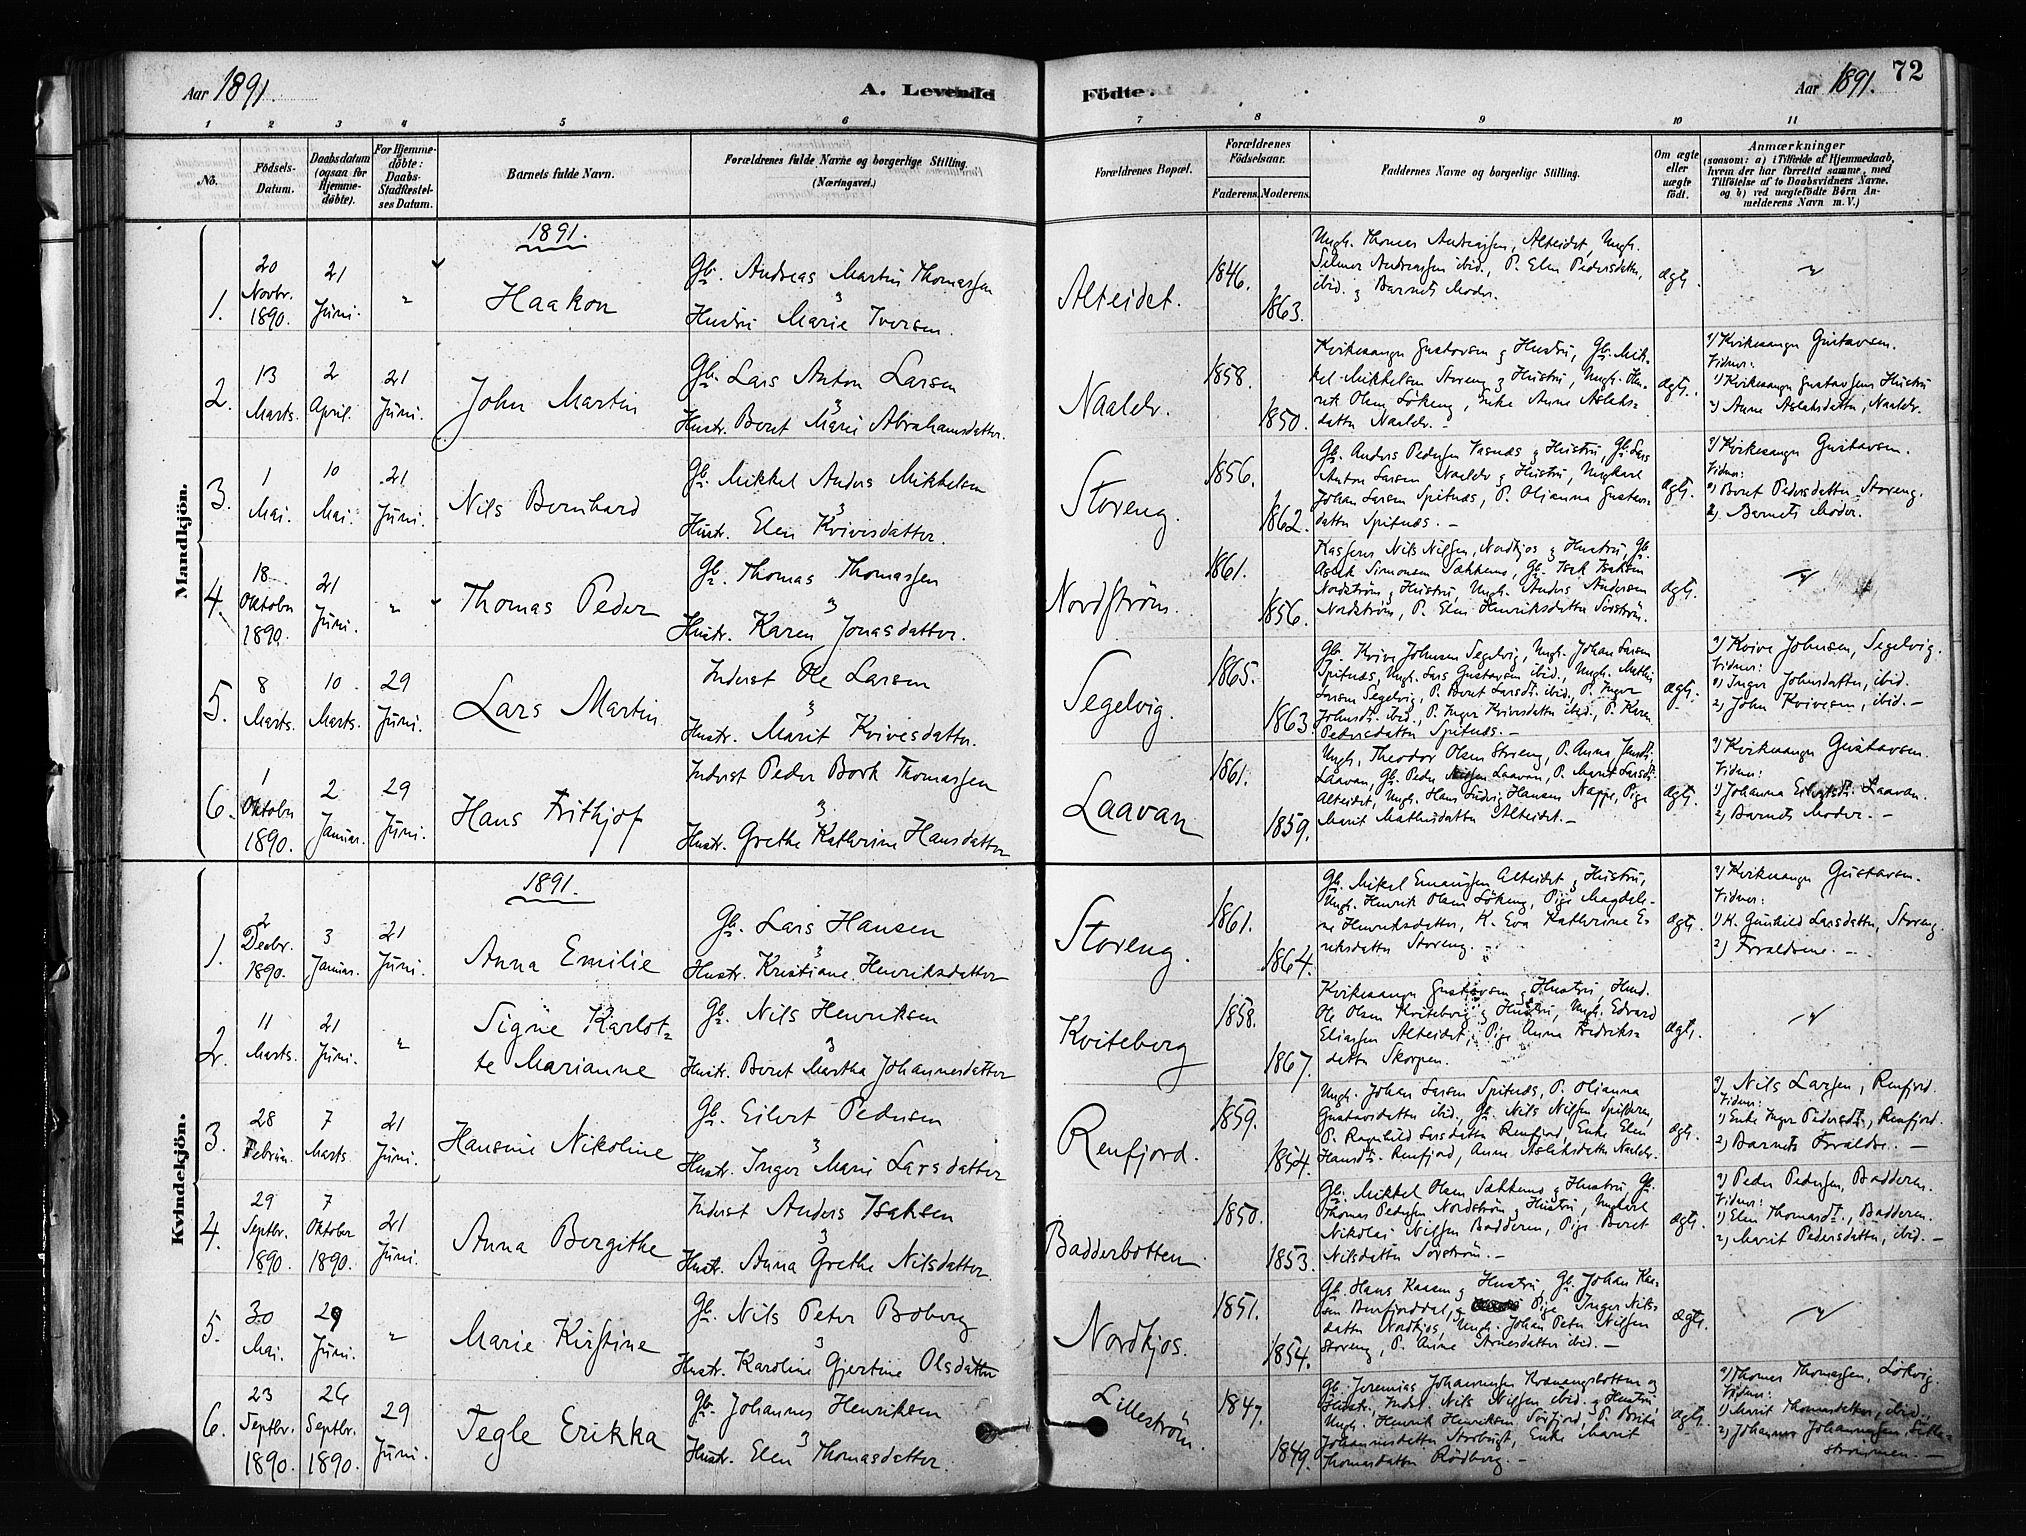 Aar 1891.
A. Levende
Födte.
Aar 1891.
72
1 2 3 4 5 6 7 8 9 10 11
No.
Födsels-
Datum.
Daabsdatum
(ogsaa for
Hjemme-
döbte).
For Hjemme-
döbte:
Daabs-
Stadfæstel-
ses Datum.
Barnets fulde Navn.
Forældrenes fulde Navne og borgerlige Stilling.
(Næringsvei.)
Forældrenes Bopæl.
Forældrenes
Födselsaar.
Faderens.
Moderens.
Faddernes Navne og borgerlige Stilling.
Om ægte
eller
uægte
födt.
Anmærkninger
(saasom: a) i Tilfælde af Hjemmedaab,
hvem der har forrettet samme, med
Tilföielse af to Daabsvidners Navne,
og b) ved uægtefödte Börn An-
melderens Navn m. V.)
Mandkjön.
1891.
1.
20
Novbr.
1890.
21
Juni.
"
Haakon
Gb. Andreas Martin Thomassen
&
Hustru Marie Iversen.
Alteidet.
1846.
1863.
Ungk. Thomas Andreassen, Alteidet, Ungk.
Selmer Andreassen ibid., P. Elen Pedersdatter,
ibid. & Barnets Moder.
ægte.
"
2.
13
Marts.
2
April.
21
Juni.
John Martin
Gb. Lars Anton Larsen
&
Hustr. Beret Marie Abrahamsdatter.
Naaelv.
1858.
1850.
Kvikesanger Gustavsen & Hustru, Gb. Mik-
kel Mikkelsen Storeng & Hustru, Ungk. Hen-
rik Olsen Lökeng, Enke Anne Aslaks-
datter Naaelv. -
ægte.
a) Kvikesanger Gustavsen.
Vidner:
1) Kvikesanger Gustavsens Hustru
2) Anne Aslaksdatter, Naaelv.
3.
1
Mai.
10
Mai.
21
Juni.
Nils Bernhard
Gb. Mikkel Anders Mikkelsen
&
Hustr. Elen Kvivesdatter.
Storeng.
1856.
1862.
Gb. Anders Pedersen Vasnæs & Hustru, Gb. Lars
Anton Larsen Naaelv & Hustru, Ungkarl
Johan Larsen Spitnæs, P. Olianna Gustavs-
datter Spitnæs. -
ægte.
a) Kvikesanger Gustavsen.
Vidner:
1) Beret Pedersdatter, Storeng.
2) Barnets Moder.
4.
18
Oktober
1890.
21
Juni.
"
Thomas Peder
Gb. Thomas Thomassen
&
Hustr. Karen Jonasdatter.
Nordström.
1861.
1856.
Kasserer Nils Nilsen, Nordkjos & Hustru, Gb.
Aslak Simonsen Sækkemo, Gb. Isak Isaksen
Nordström & Hustru, Ungk. Anders Andersen
Nordström, P. Elen Henriksdatter Sörström.
ægte.
"
5.
8
Marts.
10
Marts.
29
Juni.
Lars Martin
Inderst Ole Larsen
&
Hustr. Marit Kvivesdatter.
Segelvig.
1865.
1863.
Gb. Kvive Johnsen Segelvig, Ungk. Johan Larsen
Spitnæs, Ungk. Lars Gustavsen ibid., Ungk. Mathis
Larsen Segelvig, P. Beret Larsdt. ibid., P. Inger
Johnsdt. ibid., P. Inger Kvivesdatter ibid., P. Karen
Pedersdatter Spitnæs. -
ægte.
a) Kvive Johnsen, Segelvig.
Vidner:
1) Inger Johnsdatter, ibid.
2) John Kvivesen, ibid. -
6.
1
Oktober
1890.
2
Januar.
29
Juni.
Hans Frithjof
Inderst Peder Bork Thomassen
&
Hustr. Grethe Kathrine Hansdatter
Laavan
1861.
1859.
Ungk. Theodor Olsen Storeng, P. Anna Jensdt.
Laavan, Gb. Peder Nilsen Laavan, P. Marit Larsdt.
Alteidet, Ungk. Hans Ludvig Hansen Nappe, Pige
Marit Mathisdatter Alteidet. -
ægte.
a) Kvikesanger Gustavsen.
Vidner:
1) Johanna Laavan.
2) Barnets Moder. -
Kvindekjön.
1891.
1.
2
Decbr.
1890.
3
Januar.
21
Juni.
Anna Emilie
Gb. Lars Hansen
&
Hustr. Kristiane Henriksdatter
Storeng.
1861.
1864.
Gb. Mikel Emausen Alteidet & Hustru,
Ungk. Henrik Olsen Lökeng, Pige Magdale-
ne Henriksdatter, K. Eva Kathrine E-
riksdatter Storeng. -
ægte.
a) Kvikesanger Gustavsen.
Vidner:
1) K. Gunhild Larsdatter, Storeng.
2) Forældrene. -
2.
11
Marts.
21
Juni.
"
Signe Karlot-
te Marianne
Gb. Nils Henriksen
&
Hustr. Beret Martha Johannesdatter
Kviteberg
1858.
1867.
Kvikesanger Gustavsen & Hustru, Hmd.
Ole Olsen Kviteberg & Hustru, Ungk. Edvard
Eliassen Alteidet, Pige Anna Fredriks-
datter Skorpen.
ægte.
"
3.
28
Februar.
7
Marts.
21
Juni.
Hansine Nikoline
Gb. Eilert Pedersen
&
Hustr. Inger Marie Larsdatter
Renfjord.
1859.
1854.
Ungk. Johan Larsen Spitnæs, P. Olianna
Gustavsdatter ibid., Gb. Nils Nilsen
P. Ragnhild Larsdatter Renfjord, Enke Elen
Hansdt. Renfjord, Anne Aslaksdatter Naaelv.
ægte.
a) Nils Larsen, Renfjord.
Vidner:
1) Enke Inger Pedersdt., Renfjord.
2) Barnets Forældre. -
4.
29
Septbr.
1890.
7
Oktober
1890.
21
Juni.
Anna Bergithe
Inderst Anders Isaksen
&
Hustr. Anna Grethe Nilsdatter.
Badderbotten.
1850.
1853.
Gb. Mikkel Olsen Sækkemo & Hustru, Gb.
Thomas Pedersen Nordström & Hustru, Ungkarl
Nikolai Nilsen Badderen, Pige Beret
Nilsdatter Sörström. -
ægte.
a) Peder Pedersen, Badderen.
Vidner:
1) Elen Thomasdt., Badderen.
2) Marit Pedersdatter, ibid. -
5.
30
Mai.
29
Juni.
"
Marie Kirstine
Gb. Nils Peter Boberg
&
Hustr. Karoline Gjertine Olsdatter
Nordkjos.
1851.
1854.
Gb. Hans Kaasen & Hustru, Gb. Johan Kaa-
sen Burfjorddal, & Pige Inger Nils-
datter Nordkjos, Ungk. Johan Peter Nilsen
Storeng, P. Anne Arnesdatter ibid. -
ægte.
"
6.
23
Septbr.
1890.
26
Septbr.
1890.
29
Juni.
Tegle Erikka
Gb. Johannes Henriksen
&
Hustr. Elen Thomasdatter.
Lilleström.
1847.
1849.
Gb. Jeremias Johannesen Kvænangsbotten og
Hustru, Indst. Nils Nilsen ibid. & Hustru,
Ungk. Henrik Henriksen Sörfjord, P. Brita
Johannesdatter Storbugt, Enke Marit
Thomasdatter Rödberg. -
ægte.
a) Thomas Thomassen, Lökvig.
Vidner:
1) Marit Thomasdatter, ibid.
2) Johannes Johannessen, Lille-
strömmen. -